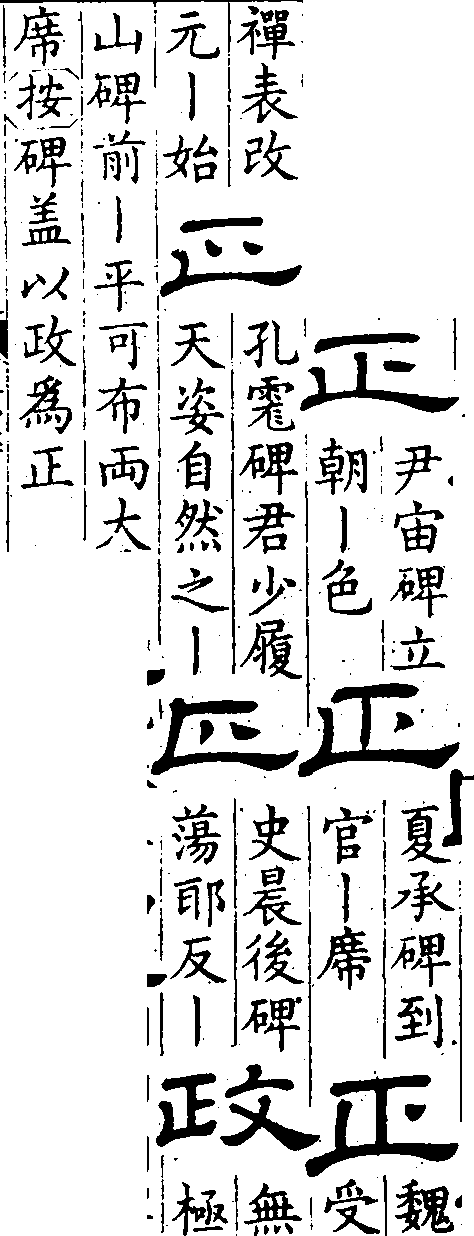 正
尹宙碑立
朝丨色
正
夏承碑到
官丨席
正
魏
受
禪表改
元丨始
正
孔碑君少履
天姿自然之丨
正
史晨後碑
蕩耶反丨
政
無
極
山碑前丨平可布両大
席按碑盖以政爲正